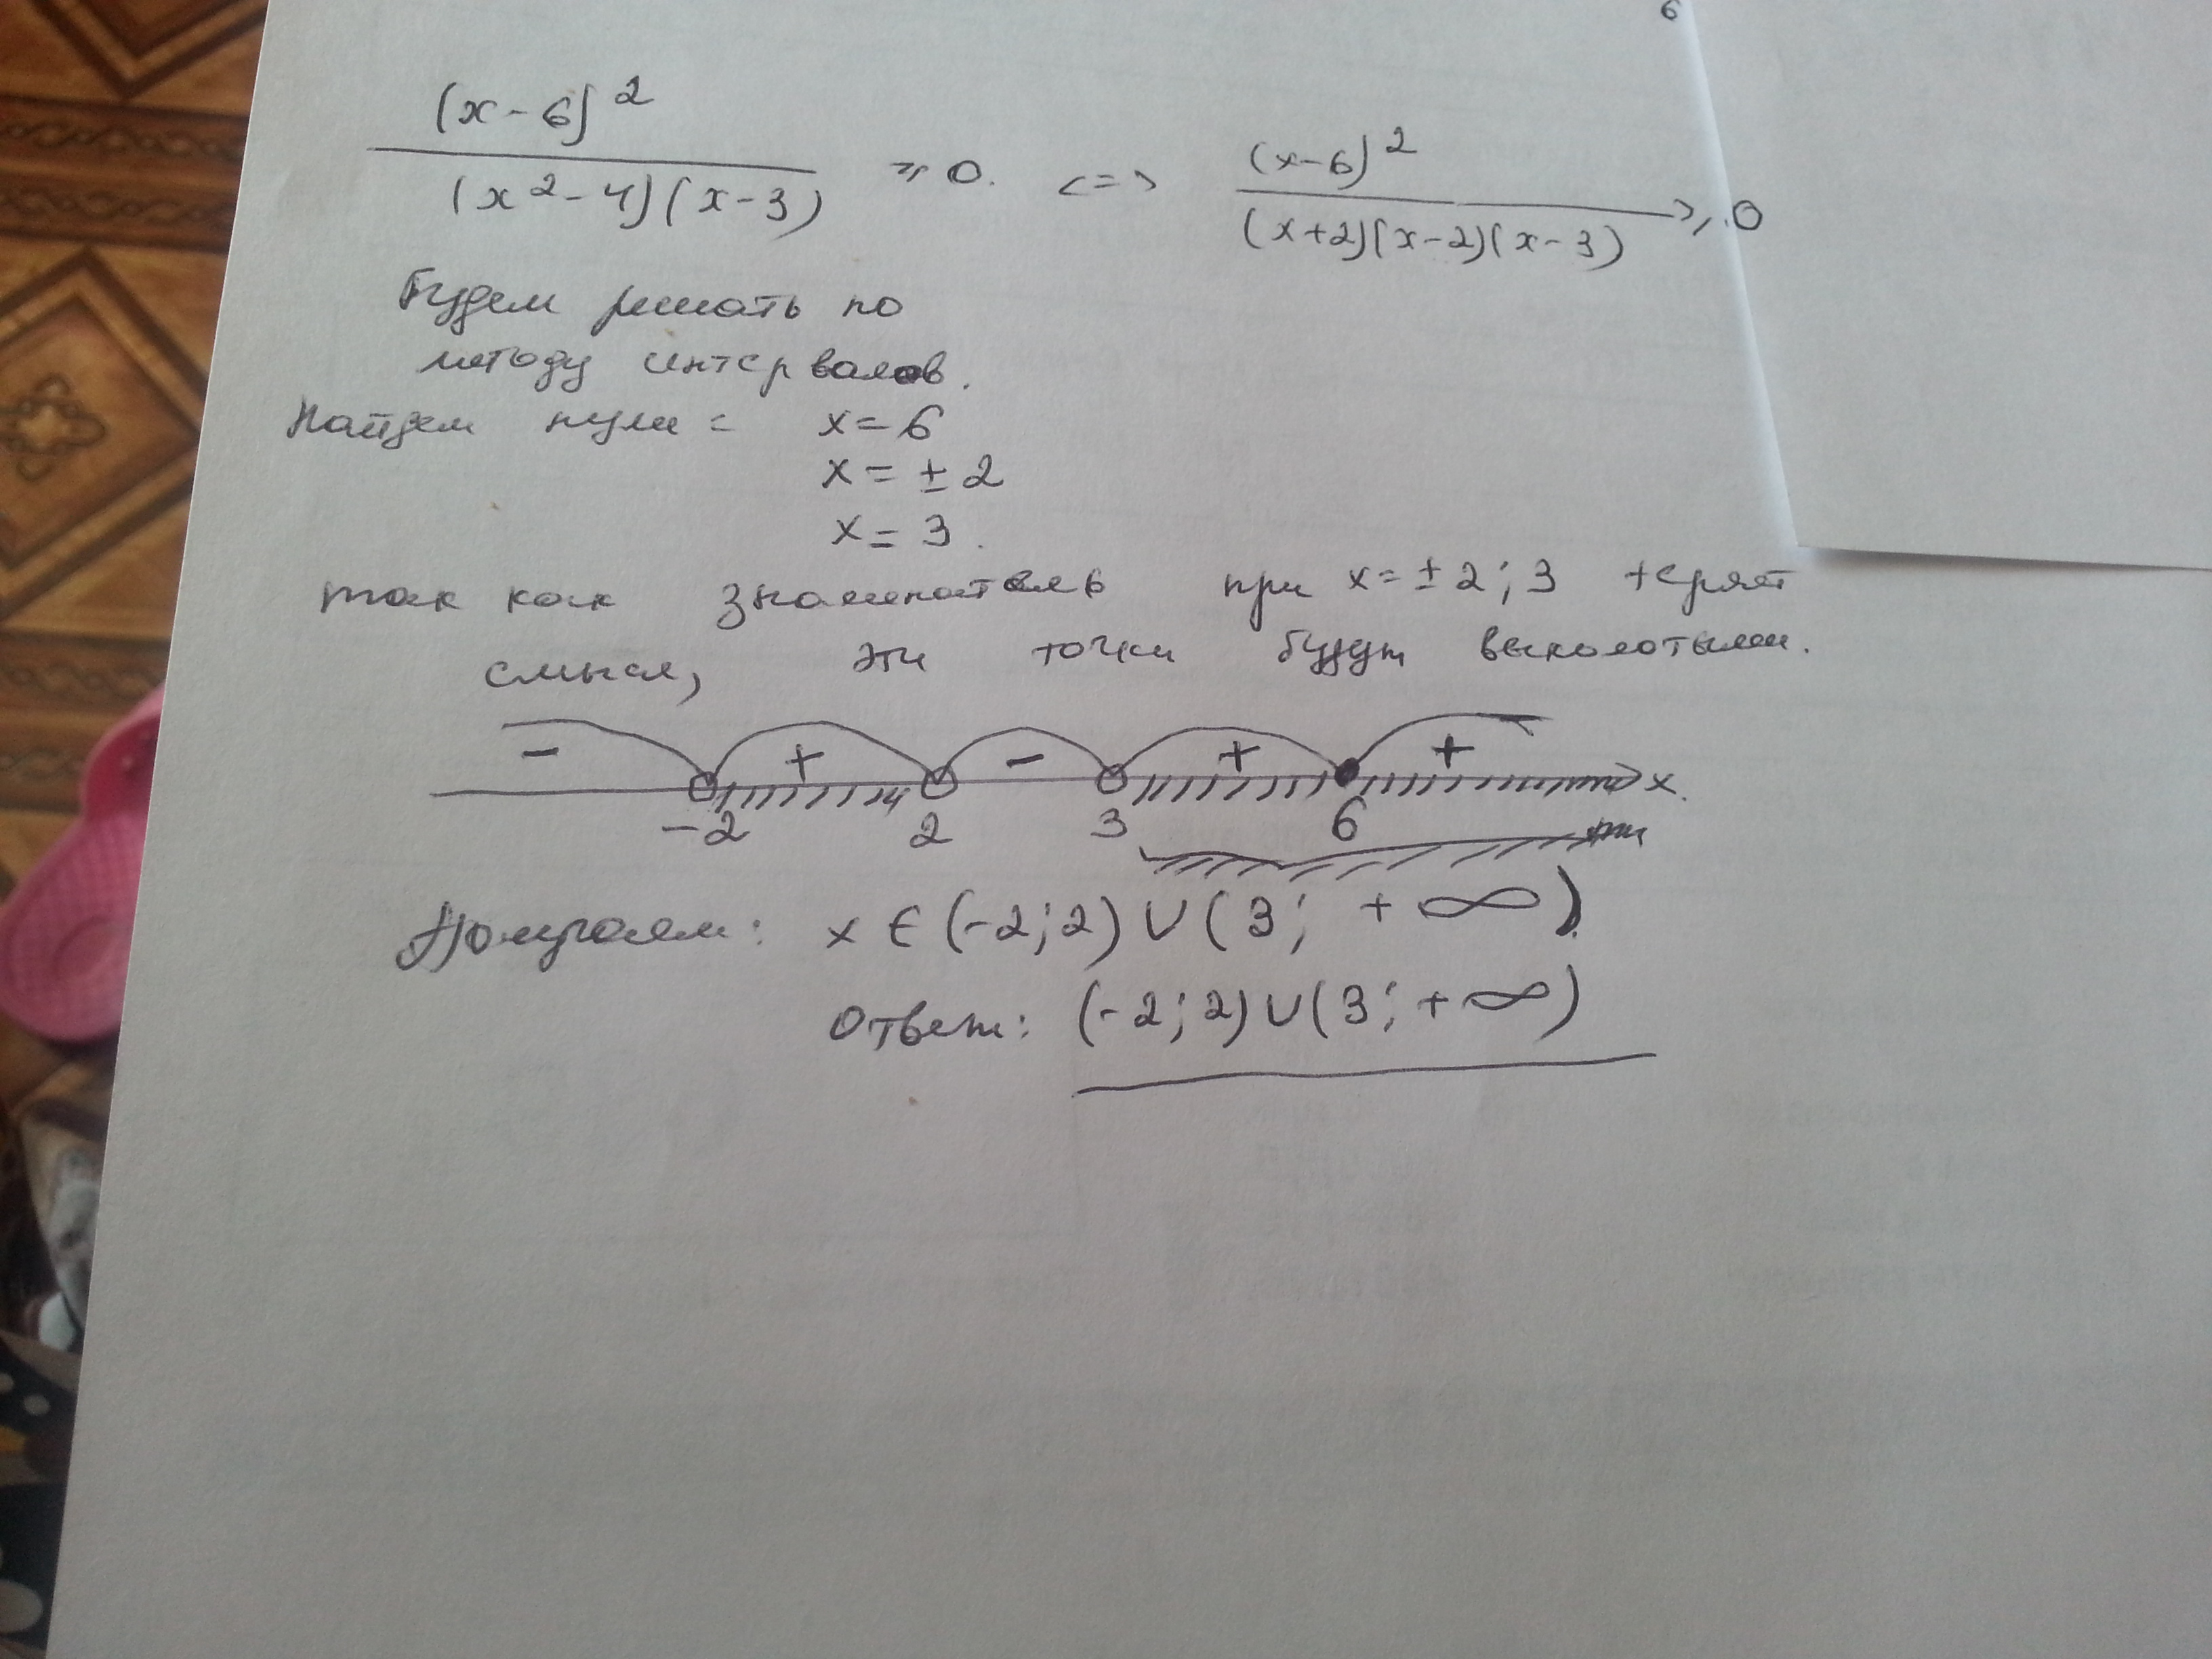 6
(x-6)²
/ (x²-4)(x-3) ≥ 0. <=> (x-6)² / (x+2)(x-2)(x-3) ≥ 0
Будем решать по
методу интервалов.
Найдем нули: x=6
x = ± 2
x = 3.
так как знаменатель при x=±2; 3 теряет
смысл, эти точки будут выколотыми.
- + - + +
-2 2 3 6 x.
Получаем: x ∈ (-2; 2) ∪ (3; +∞).
Ответ: (-2; 2) ∪ (3; +∞)